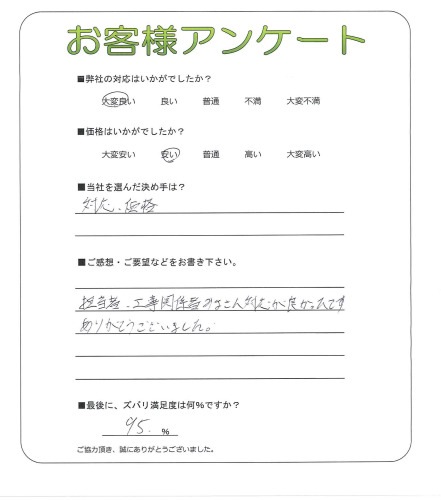 お客様アンケート
■弊社の対応はいかがでしたか?
大変良い 良い 普通 不満 大変不満
■価格はいかがでしたか?
大変安い 安い 普通 高い 大変高い
■当社を選んだ決め手は?
対応、価格
■ご感想・ご要望などをお書き下さい。
担当者、工事関係者のみなさん対応が良かったです
ありがとうございました。
■最後に、ズバリ満足度は何%ですか?
95. %
ご協力頂き、誠にありがとうございました。